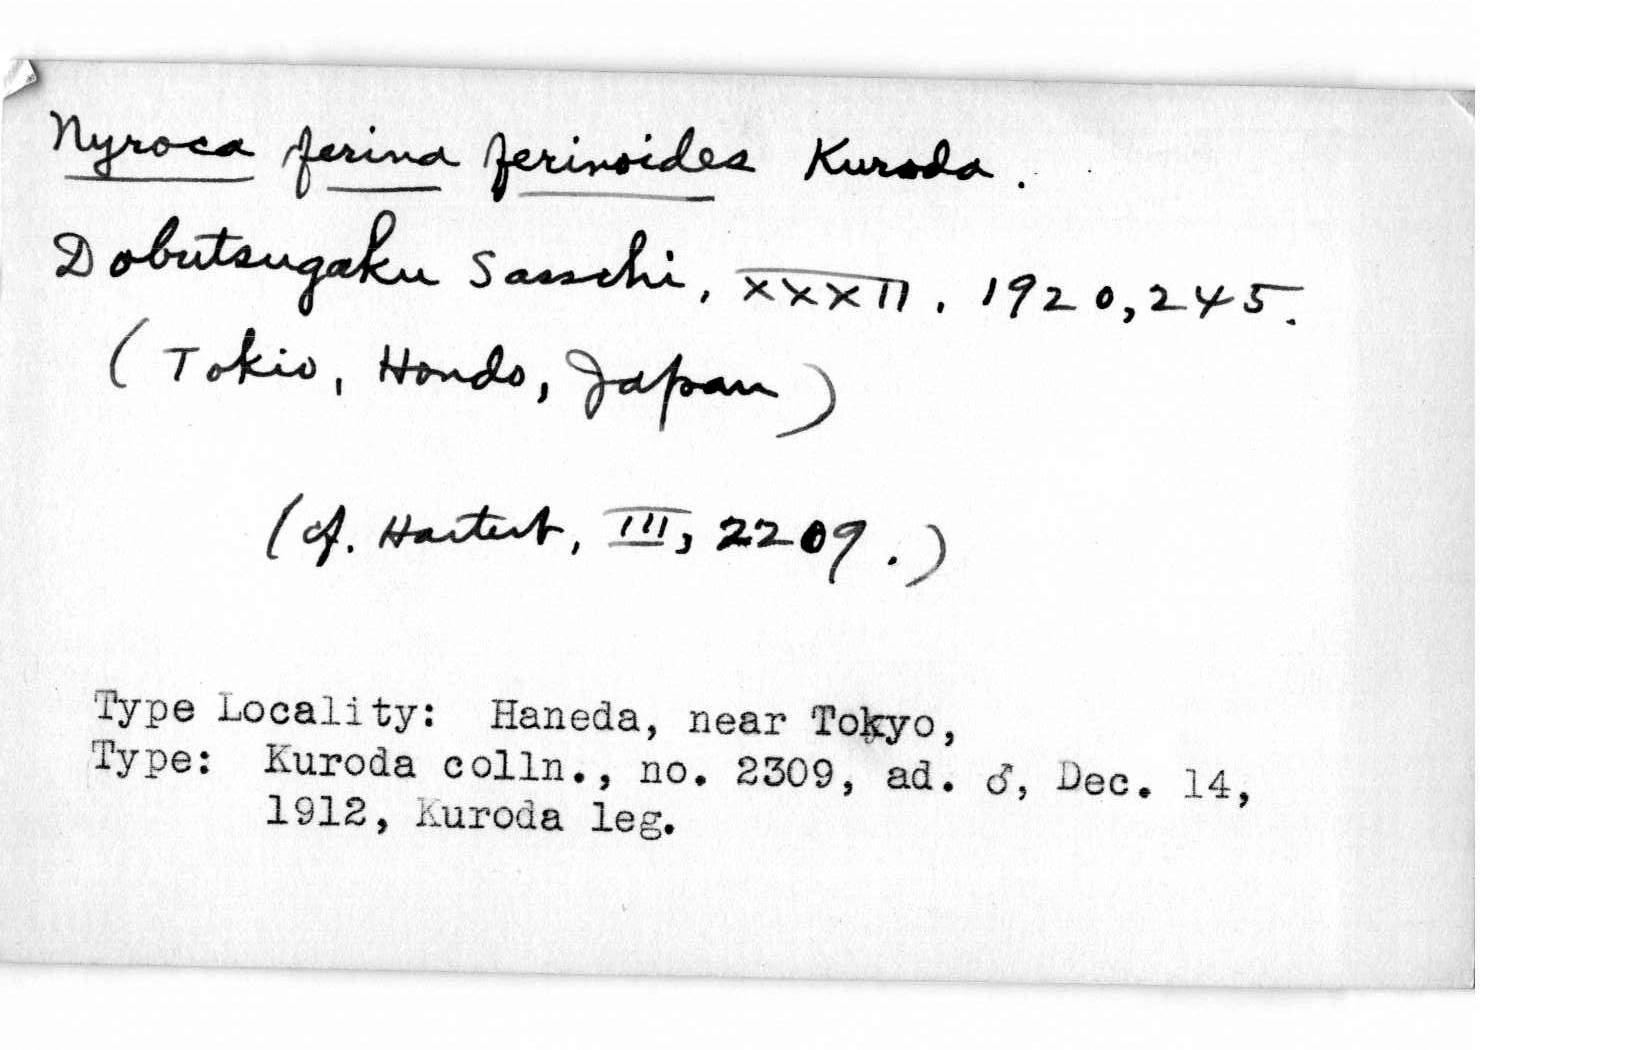 Nyroca ferina ferinoides Kuroda.
Dobutsugaku Sasschi, XXXII. 1920, 245.
(Tokio, Hondo, Japan)
(cf. Hartert, III, 2209.)
Type Locality: Haneda, near Tokyo,
Type: Kuroda colln., no. 2309, ad. ♂, Dec. 14,
1912, Kuroda leg.